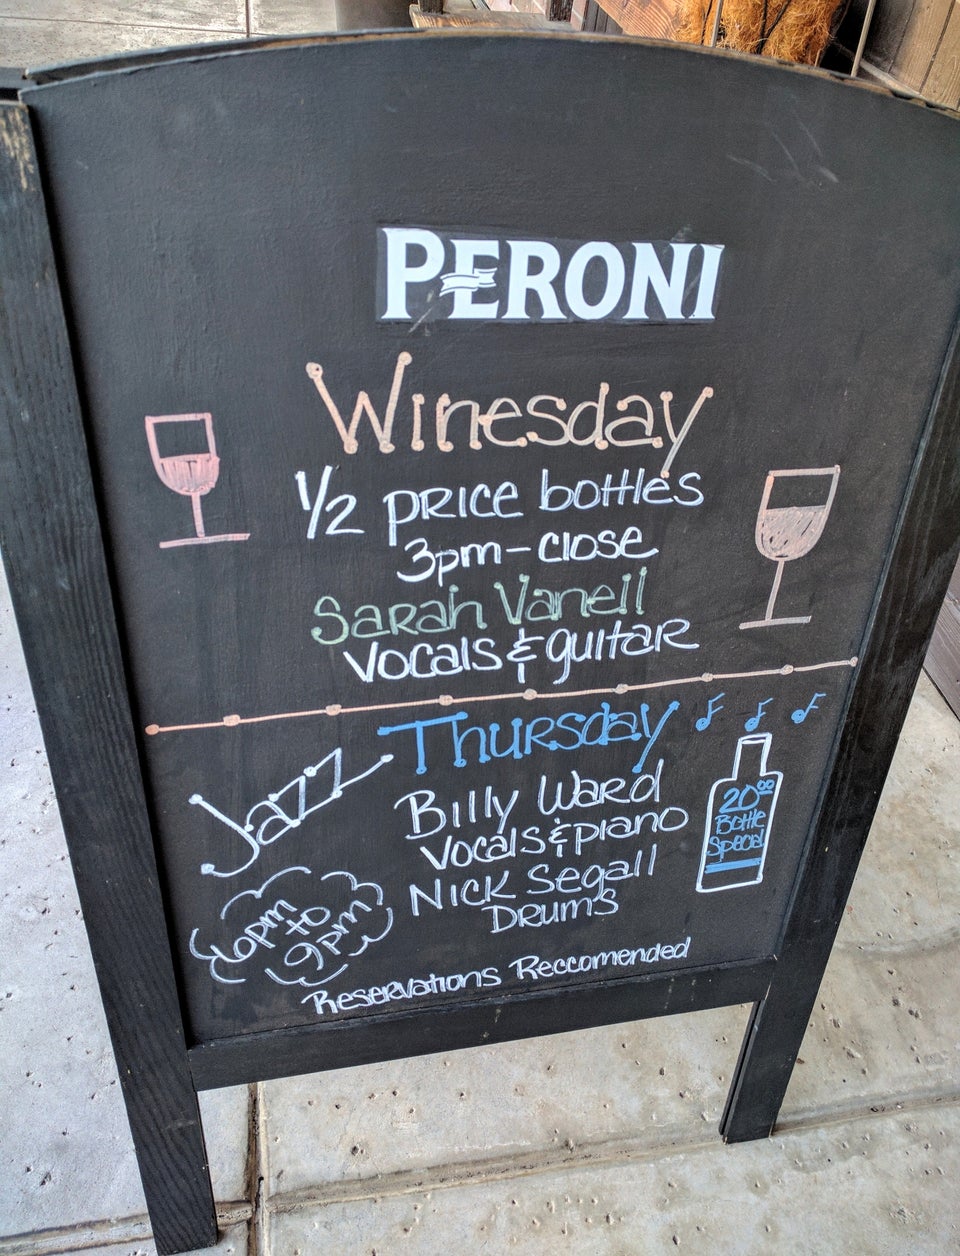 PERONI
Winesday
1/2 price bottles
3pm-close
Sarah Vanell
Vocals & guitar
Thursday
Jazz
Billy Ward
Vocals & piano
Nick Segall
Drums
20.00
Bottle
Special
6pm
to
9pm
Reservations Reccomended